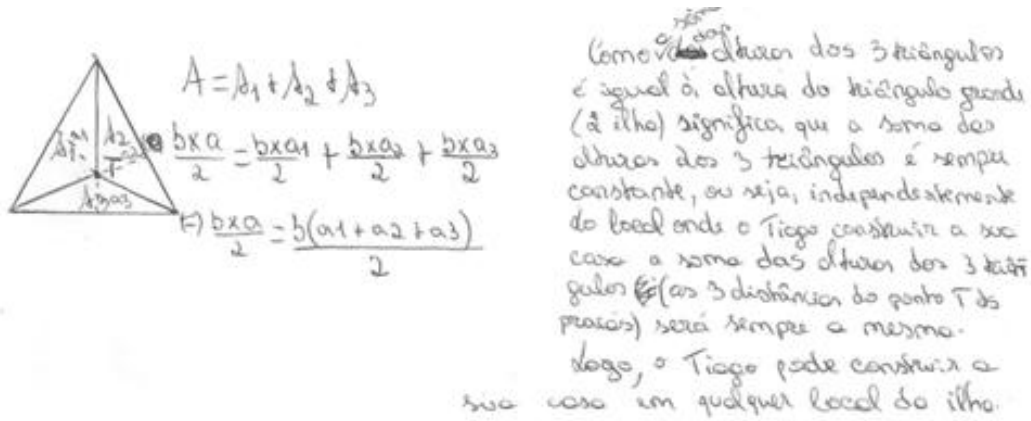 A = A1 + A2 + A3
A1 a1
A2
T a2
A3 a3
b×a/2 = b×a1/2 + b×a2/2 + b×a3/2
(=) b×a/2 = b(a1+a2+a3)/2
a soma das
Como alturas dos 3 triângulos
é igual à altura do triângulo grande
(a ilha) significa que a soma das
alturas dos 3 triângulos é sempre
constante, ou seja, independentemente
do local onde o Tiago construir a sua
casa a soma das alturas dos 3 triân
gulos (as 3 distâncias do ponto T às
praias) será sempre a mesma.
Logo, o Tiago pode construir a
sua casa em qualquer local da ilha.